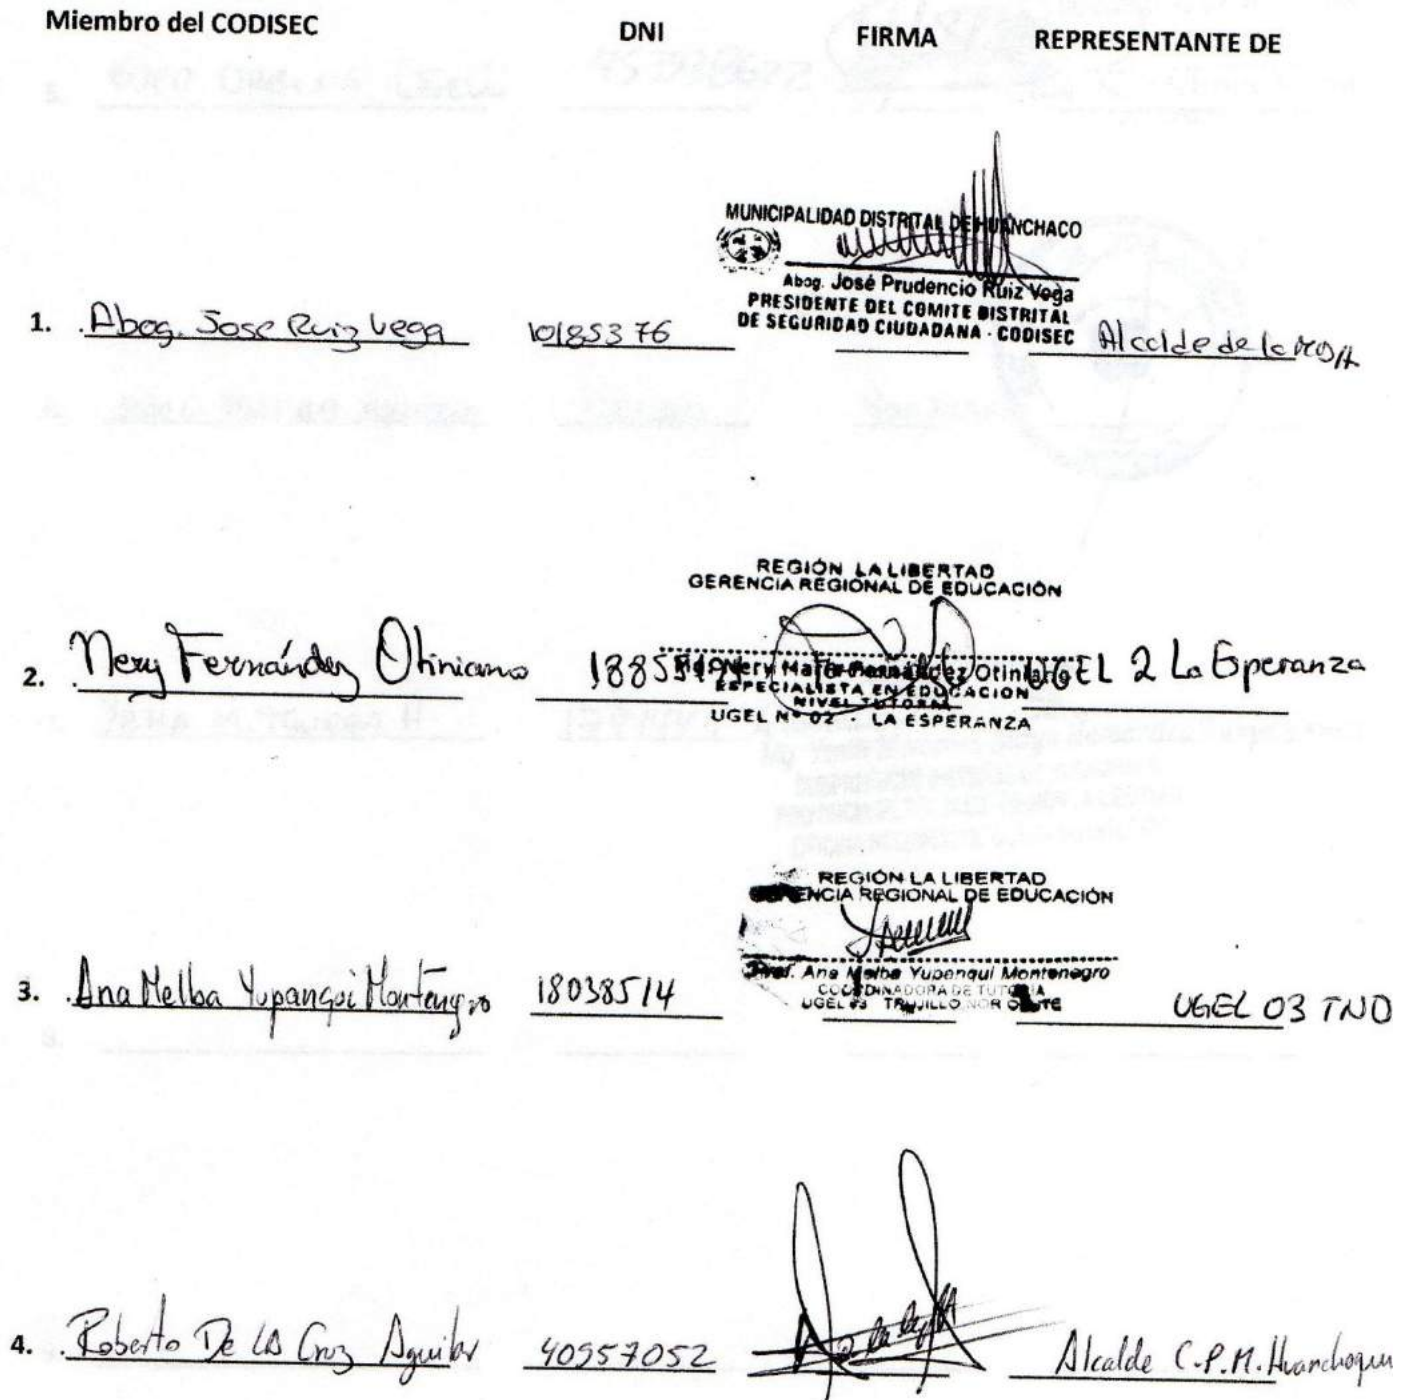 Miembro del CODISEC DNI FIRMA REPRESENTANTE DE
MUNICIPALIDAD DISTRITAL DE HUANCHACO
Abog. José Prudencio Ruiz Vega
PRESIDENTE DEL COMITE DISTRITAL
DE SEGURIDAD CIUDADANA - CODISEC
1. Abog. Jose Ruiz Vega 10185376 Alcalde de la MDH
REGIÓN LA LIBERTAD
GERENCIA REGIONAL DE EDUCACIÓN
2. Nery Fernández Otiniano UGEL 2 La Esperanza
ESPECIALISTA EN EDUCACION
NIVEL TUTORAL
UGEL N° 02 - LA ESPERANZA
REGIÓN LA LIBERTAD
REGIONAL DE EDUCACIÓN
Prof. Ana Melba Yupanqui Montenegro
COORDINADORA DE TUTORIA
UGEL 03 TRUJILLO NOR OESTE
3. Ana Melba Yupanqui Montenegro 18038514 UGEL 03 TNO
4. Roberto De La Cruz Aguilar 40557052 Alcalde C.P.M.